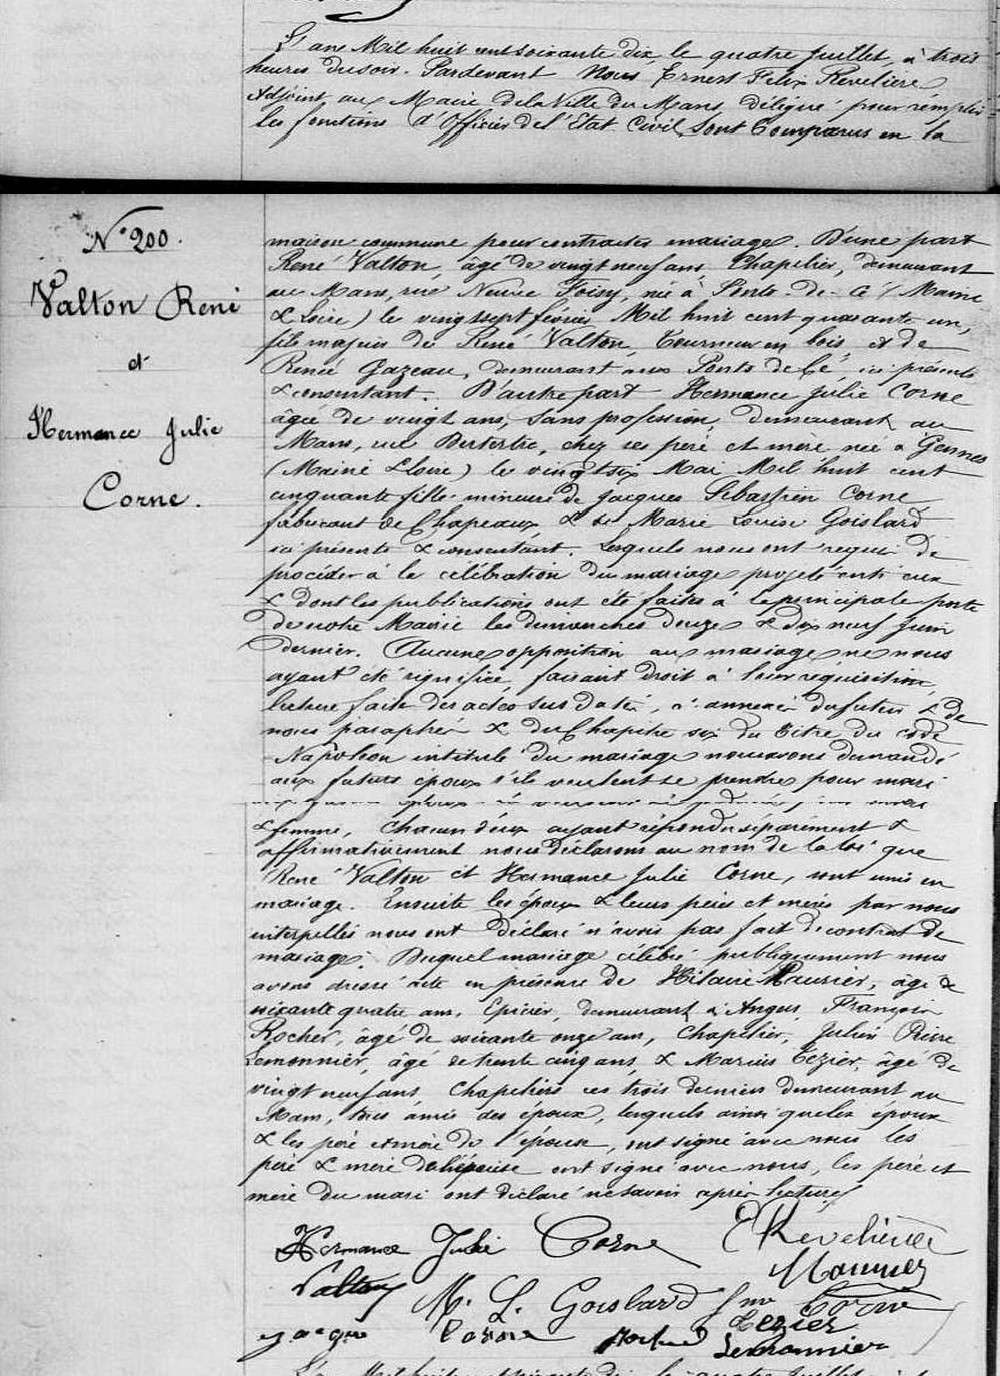 L'an Mil huit cent soixante dix, le quatre Juillet, à trois
heures du soir. Pardevant Nous Ernest Felix Reveliere
Adjoint au Maire de la Ville du Mans délégué pour remplir
les fonctions d'Officier de l'Etat Civil, Sont Comparus en la
N° 200.
Valton René
et
Hermance Julie
Corne.
maison commune pour contracter mariage. D'une part
René Valton, âgé de vingt neuf ans, Chapelier, demeurant
au Mans, rue Neuve, né à Ponts-de-Cé (Maine
& Loire) le vingt sept février Mil huit cent quarante un,
fils majeur de René Valton, Tourneur en bois, et de
Renée Gazeau, demeurant aux Ponts de Cé, ici présents
& consentant. D'autre part Hermance Julie Corne
âgée de vingt ans, Sans profession, demeurant au
Mans, rue Dutertre, chez ses père et mère née à Gennes
(Maine & Loire) le vingt six Mai Mil huit cent
cinquante fille mineure de Jacques Sébastien Corne
fabricant de Chapeaux, & de Marie Louise Goislard
ici présents & consentant. Lesquels nous ont requis de
procéder à la célébration du mariage projeté entre eux
& dont les publications ont été faites à la principale porte
de notre Mairie les dimanches douze & dix neuf Juin
dernier. Aucune opposition au mariage ne nous
ayant été signifiée, faisant droit à leur réquisition,
lecture faite des actes sus datés, & de
nous paraphés & du Chapitre six du titre du code
Napoléon intitulé du mariage nous avons demandé
aux futurs époux s'ils veulent se prendre pour mari
& femme, Chacun d'eux ayant répondu séparément &
affirmativement nous déclarons au nom de la loi que
René Valton et Hermance Julie Corne, sont unis en
mariage. Ensuite les époux & leurs pères et mères par nous
interpellés nous ont déclaré n'avoir pas fait de contrat de
mariage. Duquel mariage célébré publiquement nous
avons dressé acte en présence de Hilaire Maunier, âgé de
soixante quatre ans, Epicier, demeurant à Angers, François
Rocher, âgé de soixante onze ans, Chapelier, Julien Pierre
Lemonnier, âgé de trente cinq ans, & Marius Tezier, âgé de
vingt neuf ans, Chapeliers ces trois derniers demeurant au
Mans, tous amis des époux, lesquels ainsi que les époux
& les père et mère de l'épouse, ont signé avec nous les
père & mère de l'épouse ont signé avec nous, les père et
mère du mari ont déclaré ne savoir après lecture
Hermance Julie Corne E Reveliere
Maunier
Valton M. L. Goislard Corne
Tezier
Jacque Corne Rocher Lemonnier